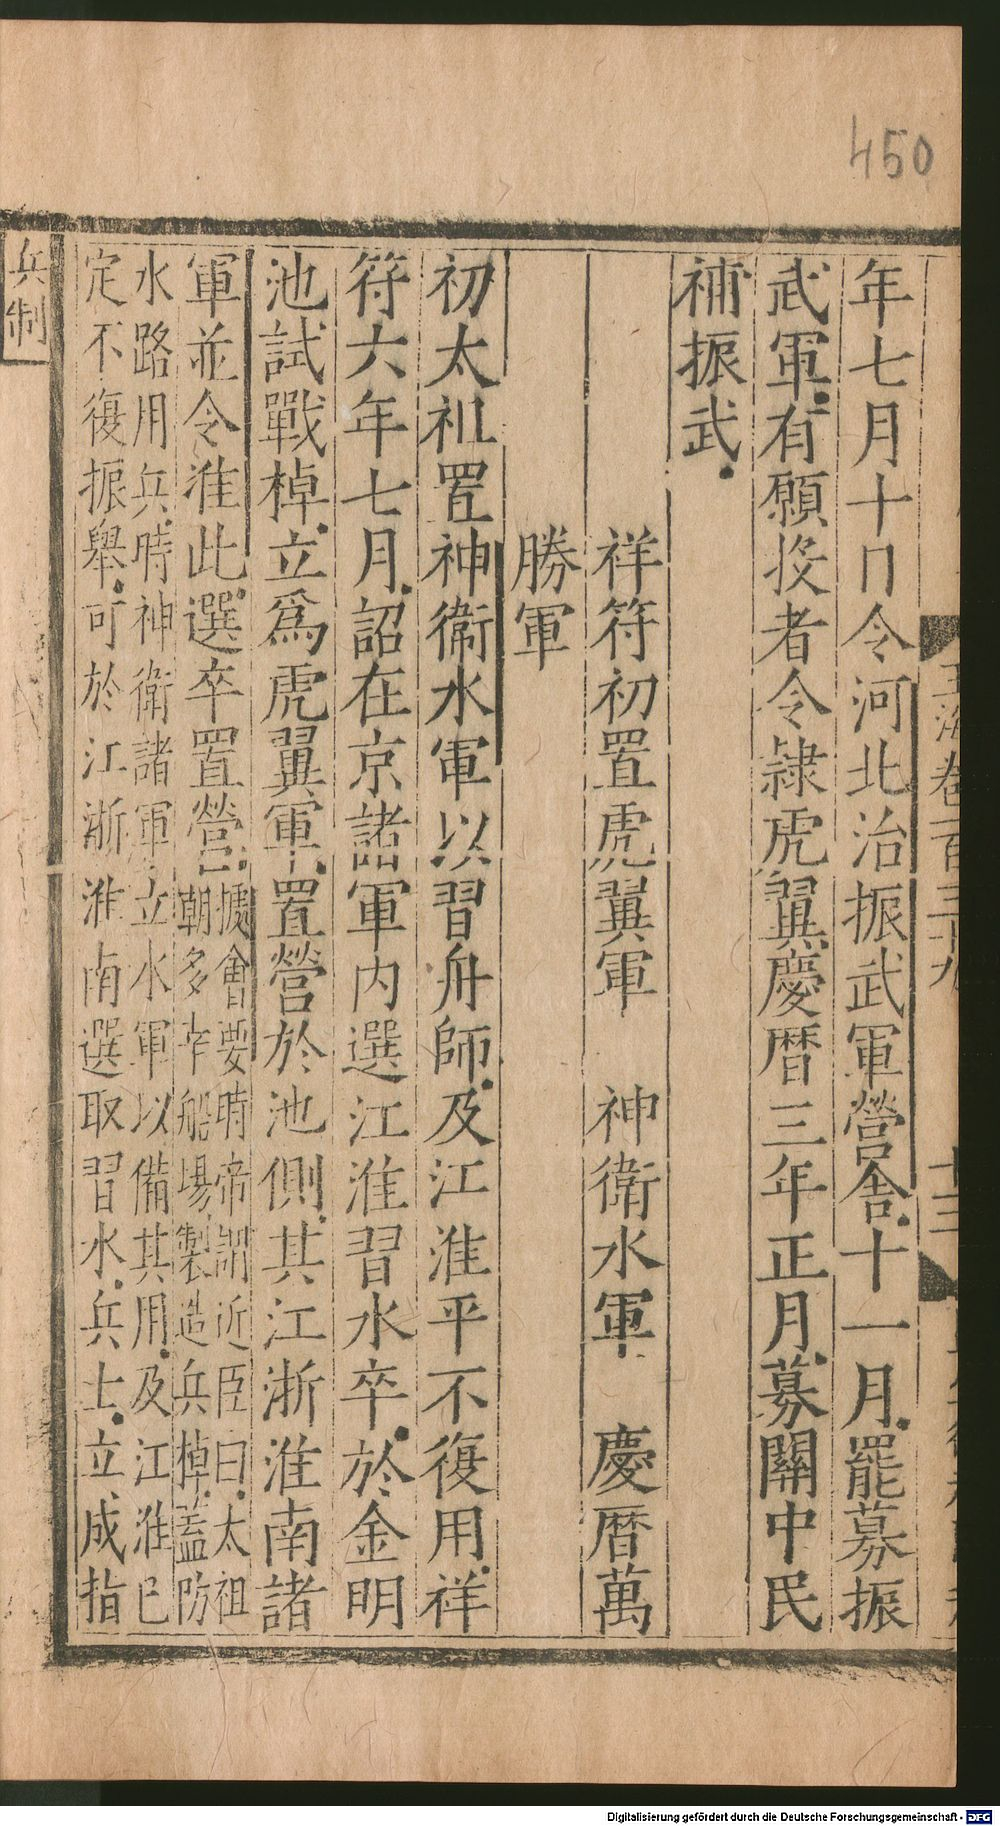 450
玉海卷一百三十九
十三
年七月十日令河北治振武軍營舎十一月罷募振
武軍有願投者令隷虎翼慶曆三年正月募關中民
補振武
祥符初置虎翼軍　神衛水軍　慶曆萬
勝軍
初太祖置神衛水軍以習舟師及江淮平不復用祥
符六年七月詔在京諸軍内選江淮習水卒於金明
池試戰棹立爲虎翼軍置營於池側其江浙淮南諸
軍並令准此選卒置營
據會要時帝謂近臣曰太祖
朝多幸船場製造兵棹蓋防
水路用兵時神衛諸軍立水軍以備其用及江淮已
定不復振舉可於江浙淮南選取習水兵士立成指
兵制
Digitalisierung gefördert durch die Deutsche Forschungsgemeinschaft - DFG